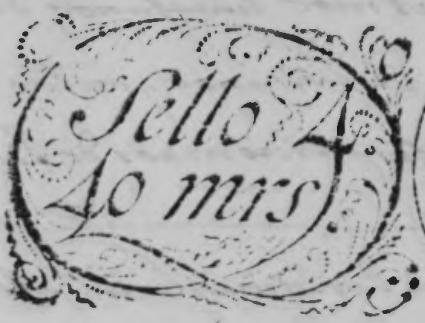 Sello 4
40 mrs